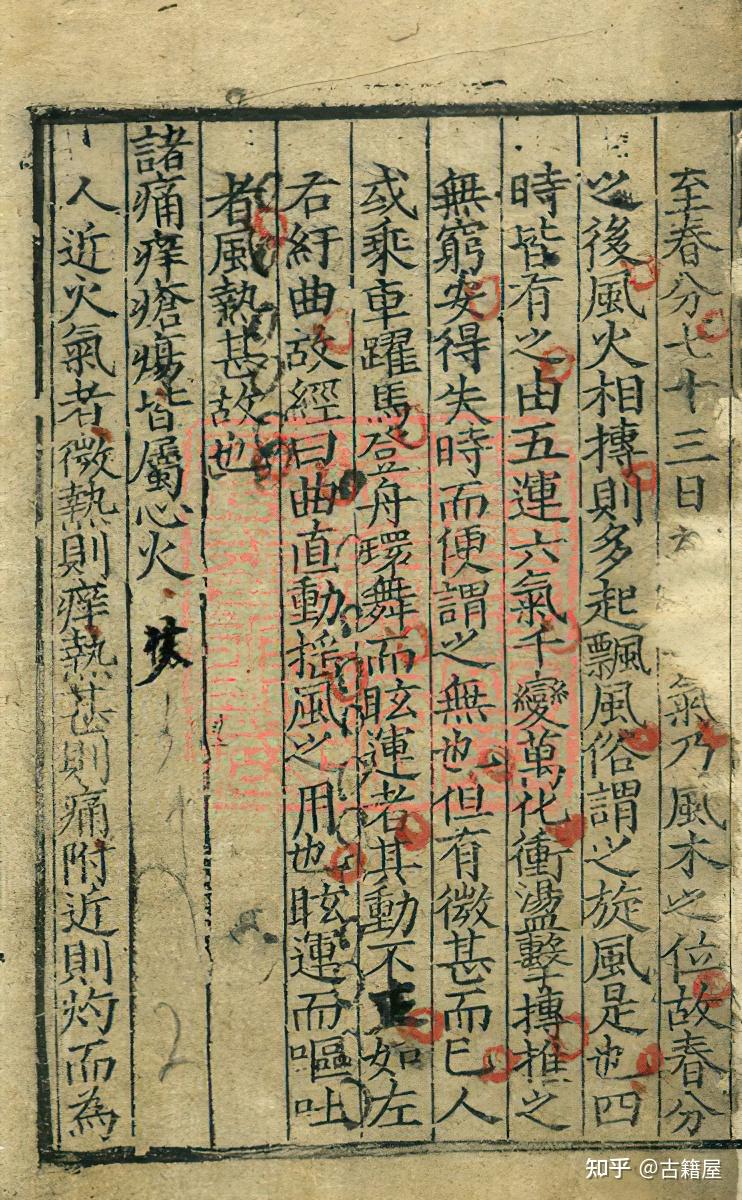 至春分七十三日六氣乃風木之位故春分
之後風火相摶則多起飄風俗謂之旋風是也四
時皆有之由五運六氣千變萬化衝盪擊摶推之
無窮安得失時而便謂之無也但有微甚而已人
或乘車躍馬登舟環舞而眩運者其動不正如左
右紆曲故經曰曲直動搖風之用也眩運而嘔吐
者風熱甚故也
諸痛痒瘡瘍皆屬心火
人近火氣者微熱則痒熱甚則痛附近則灼而為
2
知乎 @古籍屋